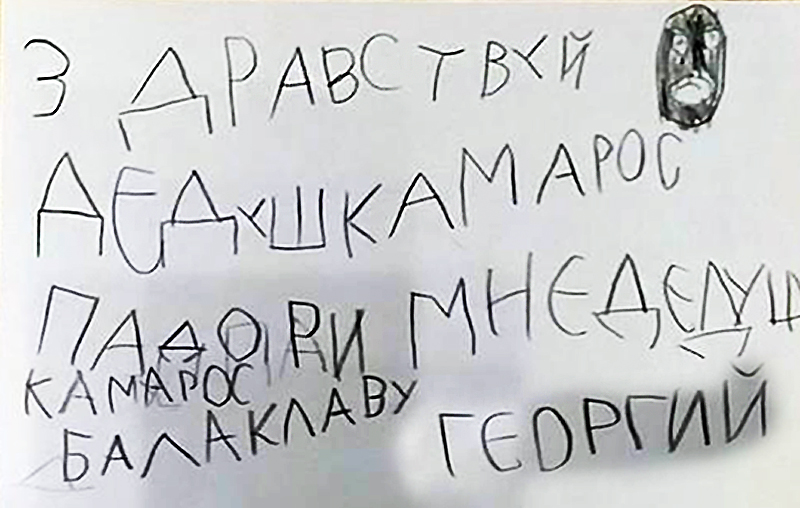 З ДРАВСТВУЙ
ДЕДУШКАМАРОС
ПАДОРИ МНЕДЕДУШ
КАМАРОС
БАЛАКЛАВУ ГЕОРГИЙ